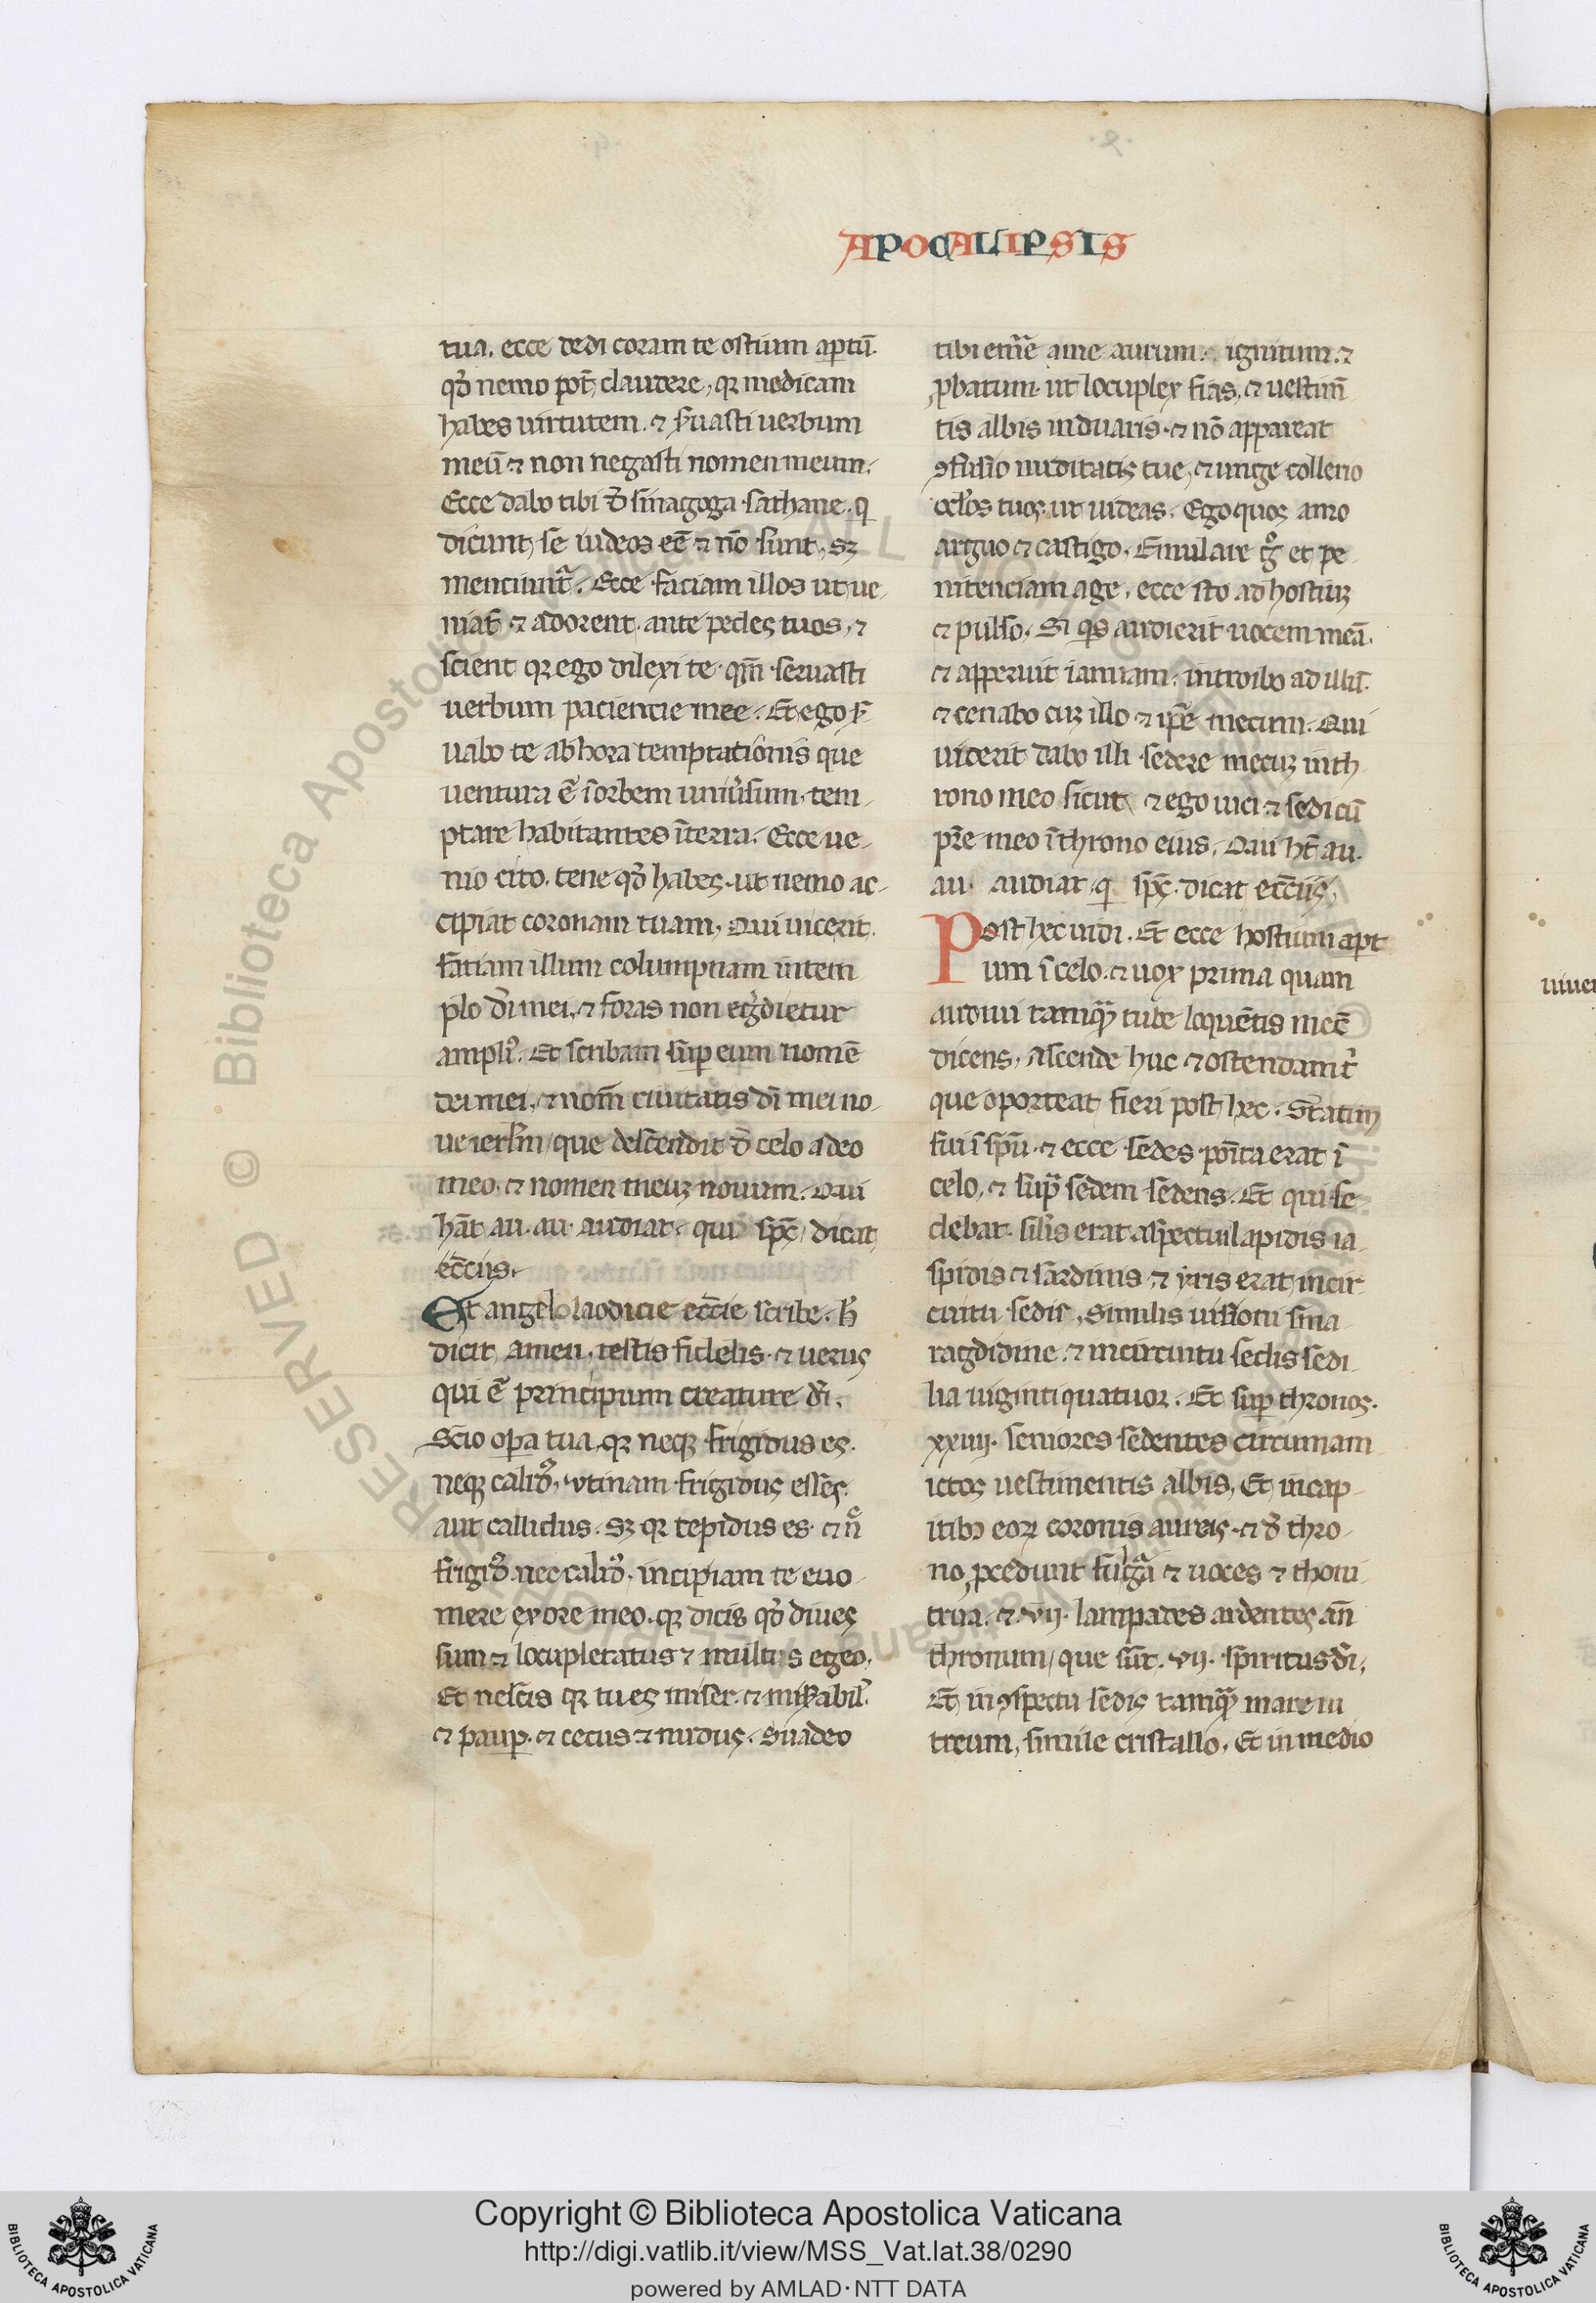 APOCALIPSIS
tua. ecce dedi coram te ostium aptū.
qđ nemo pot̄ claudere, qꝛ modicam
habes uirtutem. ⁊ ẜuasti uerbum
meū ⁊ non negasti nomen meum.
Ecce dabo tibi đ sinagoga sathane. q
dicunt se iudeos eē ⁊ nō sunt, sꝫ
menciunt᷑. Ecce faciam illos ut ue-
niāt ⁊ adorent ante pedes tuos, ⁊
scient qꝛ ego dilexi te. qm̄ seruasti
uerbum paciencie mee. Et ego ẜ-
uabo te ab hora temptationis que
uentura ē ī orbem uniu̾sum. tem-
ptare habitantes ī terra. Ecce ue-
nio cito. tene qđ habes. ut nemo ac-
cipiat coronam tuam. Qui uicerit.
faciam illum columpnam in tem
plo di̅ mei, ⁊ foras non egr̾dietur
ampli᷒. Et scribam sup eum nomē
dei mei, ⁊ nom̄ ciuitatis di̅ mei no-
ue ierlm̄, que descendit đ celo a deo
meo. ⁊ nomen meuꝫ nouum. Qui
hāt au. au. audiat. qui sp̄c dicat
ecc̄iis.
Et angelo laodicie ecc̄ie scribe. h̄
dicit amen, testis fidelis. ⁊ uerus
qui ē principium creature di̅.
Scio opa tua, qꝛ neqꝫ frigidus es.
neqꝫ calid᷒, vtinam frigidus esses.
aut callidus. sꝫ qꝛ tepidus es. ⁊ n̄
frigid᷒ nec calid᷒, incipiam te euo-
mere ex ore meo. qꝛ dicis qđ diues
sum ⁊ locupletatus ⁊ nullius egeo.
Et nescis qꝛ tu es miser. ⁊ mis̾abil᷒.
⁊ paup. ⁊ cecus ⁊ nudus. Suadeo
tibi em̄e a me aurum. ignitum. ⁊
ꝓbatum. ut locuplex fias, ⁊ uestim̄
tis albis induaris. ⁊ nō appareat
ꝯfusio nuditatis tue, ⁊ unge collerio
ocl̄os tuos. ut uideas. Ego quos amo
arguo ⁊ castigo. Emulare gͦ et pe-
nitenciam age, ecce sto ad hostiuꝫ
⁊ pulso. Si qͥs audierit uocem meā.
⁊ apperuit ianuam. introibo ad illū.
⁊ cenabo cuꝫ illo ⁊ ip̄e mecum. Qui
uicerit dabo illi sedere mecuꝫ in th-
rono meo sicut ⁊ ego uici ⁊ sedi cū
pr̄e meo ī throno eius. Qui ht̄ au.
au. audiat q sp̄c. dicat ecc̄iis.
Post hec uidi. Et ecce hostium apt
um ī celo. ⁊ uox prima quam
audiui tamqꝫ tube loquētis mecū
dicens, Ascende huc ⁊ ostendam tͥ
que oporteat fieri post hec. Statim
fui ī sp̄u. ⁊ ecce sedes poīta erat ī
celo, ⁊ supͣ sedem sedens. Et qui se
debat. sil̄is erat aspectui lapidis ia-
spidis ⁊ sardinis ⁊ yris erat in cir
cuitu sedis, similis uissioni sma-
ragdidine. ⁊ in circuitu sedis sedi-
lia uiginti quatuor. Et sup thronos.
xxiiij. seniores sedentes circumam
ictos uestimentis albis. Et in cap-
itibꝫ eoꝝ coronis aureis. ⁊ đ thro-
no, ꝓcedunt fulgͣa ⁊ uoces ⁊ thoni-
trua. ⁊ .vij. lampades ardentes an̄
thronum, que sūt .vij. spiritus di̅.
Et in ꝯspectu sedis tamqꝫ mare ui
treum, simile cristallo. Et in medio
Copyright © Biblioteca Apostolica Vaticana
http://digi.vatlib.it/view/MSS_Vat.lat.38/0290
powered by AMLAD·NTT DATA
BIBLIOTECA APOSTOLICA VATICANA
BIBLIOTECA APOSTOLICA VATICANA